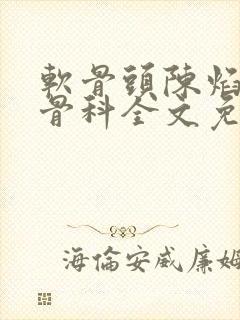 軟骨頭陳焰
骨科全文免
海倫安威廉姆